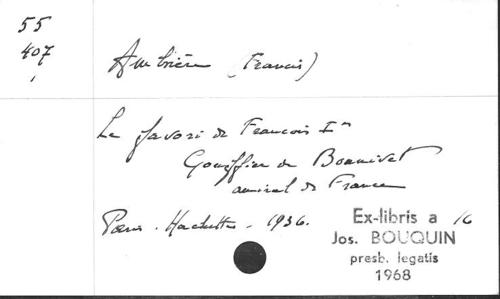 55
407
Ambrière (Francis)
Le favori de François Ier
Gouffier de Bonnivet
amiral de France
Paris. Hachette. 1936.
Ex-libris a 16
Jos. BOUQUIN
presb. legatis
1968